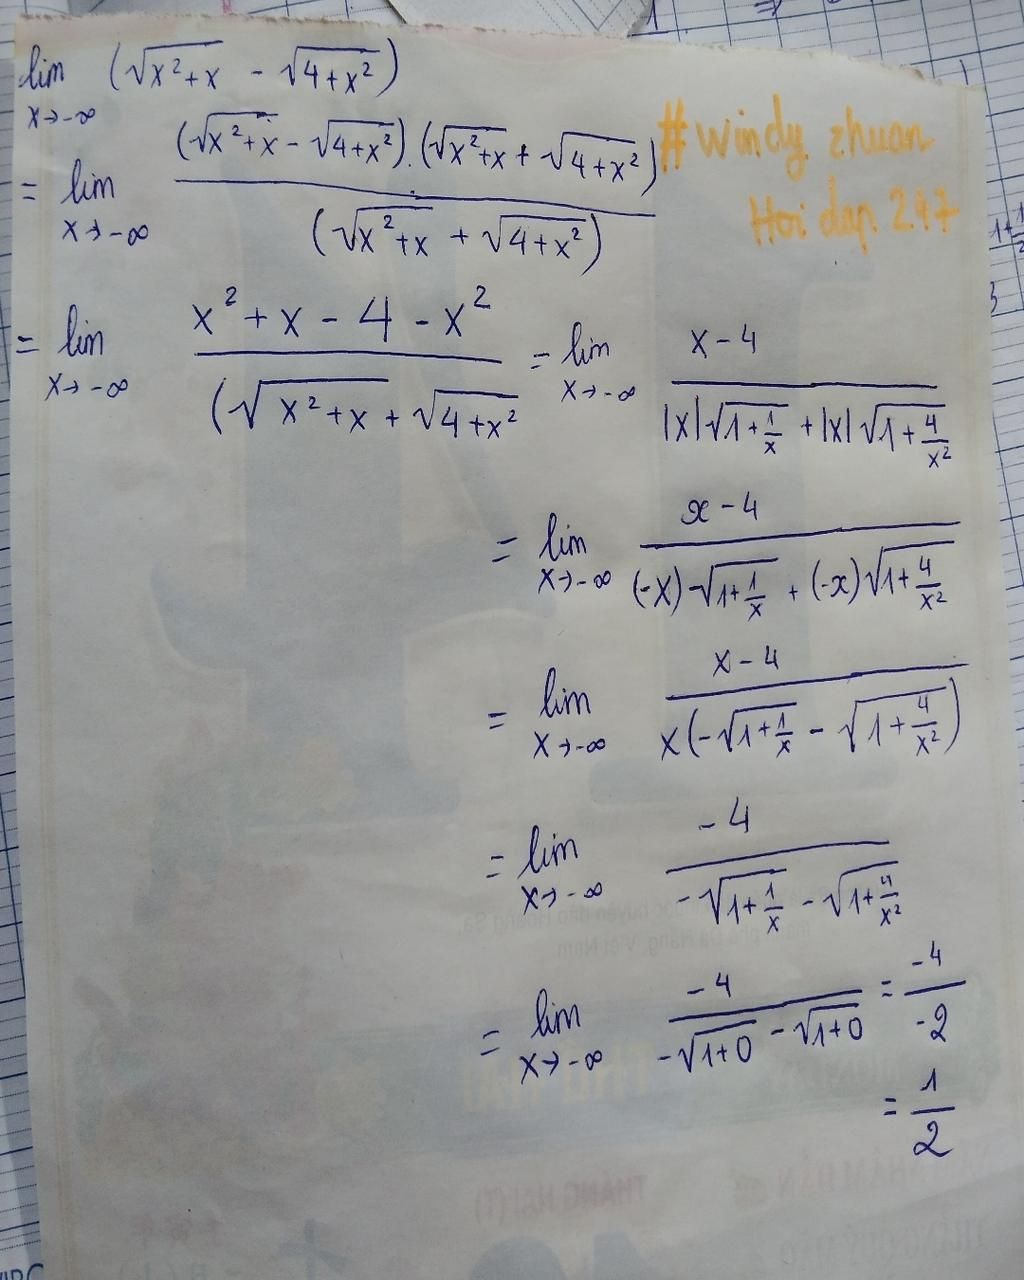 lim (√(x²+x) - √(4+x²))
x→-∞
= lim ((√(x²+x) - √(4+x²)).(√(x²+x) + √(4+x²))) / (√(x²+x) + √(4+x²))
x→-∞
#Windy zhuan
Hoi dap 247
= lim (x²+x-4-x²) / (√(x²+x) + √(4+x²) = lim (x-4) / (|x|√(1+1/x) + |x|√(1+4/x²))
x→-∞ x→-∞
= lim (x-4) / ((-x)√(1+1/x) + (-x)√(1+4/x²))
x→-∞
= lim (x-4) / (x(-√(1+1/x) - √(1+4/x²)))
x→-∞
= lim -4 / (-√(1+1/x) - √(1+4/x²))
x→-∞
= lim -4 / (-√(1+0) - √(1+0)) = -4 / -2
x→-∞
= 1/2
THÁNG HAI (T)